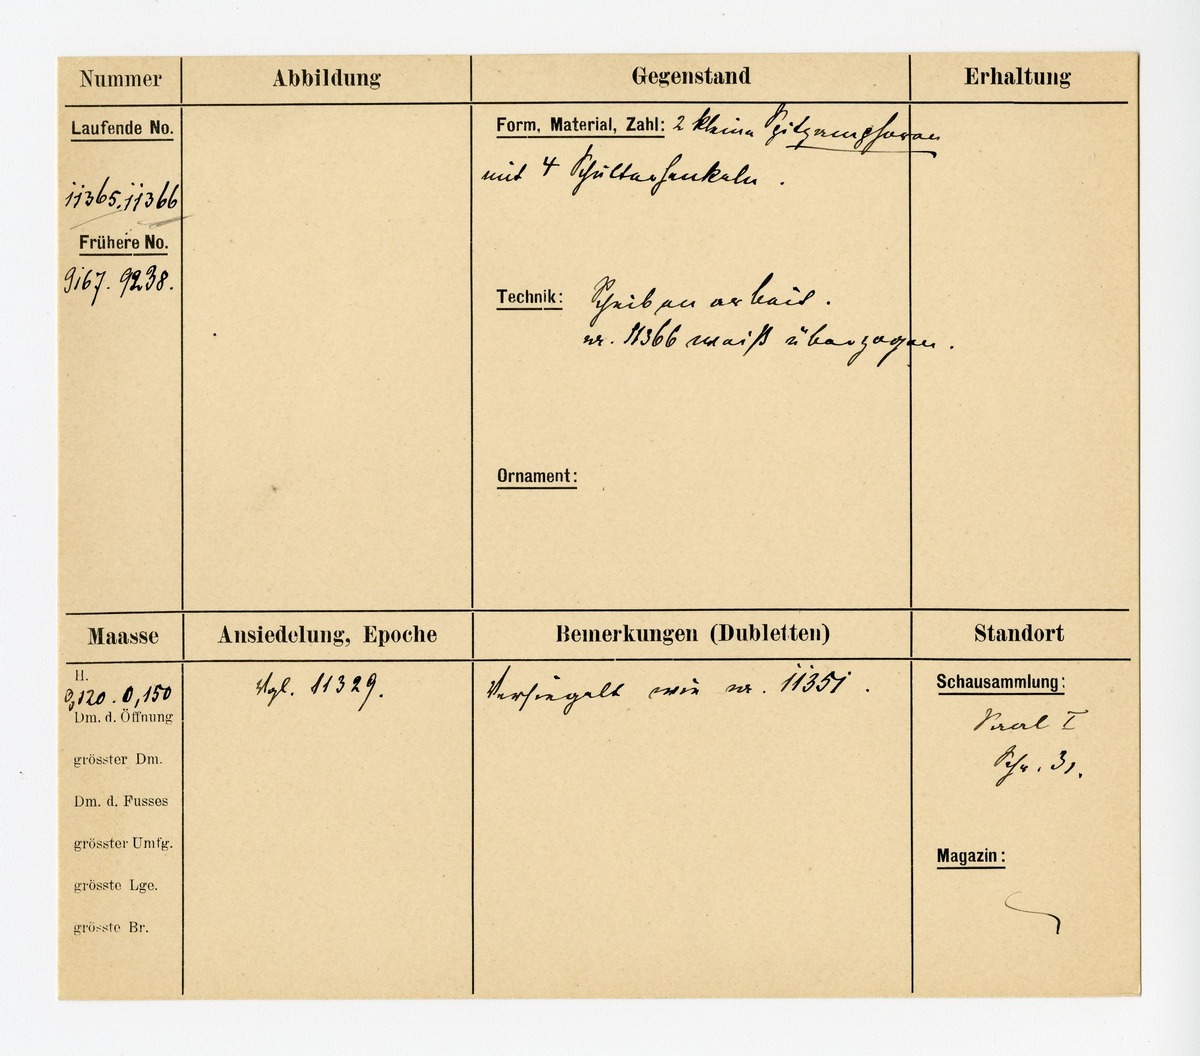 Nummer
Abbildung
Gegenstand
Erhaltung
Laufende No.
11365. 11366
Frühere No.
9167. 9238.
Form, Material, Zahl: 2 kleine Spitzamphoren
mit 4 Schulterhenkeln.
Technik: Scheibenarbeit.
nr. 11366 weiß überzogen.
Ornament:
Maasse
Ansiedelung, Epoche
Bemerkungen (Dubletten)
Standort
H.
0,120. 0,150
Dm. d. Öffnung
grösster Dm.
Dm. d. Fusses
grösster Umfg.
grösste Lge.
grösste Br.
Vgl. 11329.
Versiegelt wie nr. 11351.
Schausammlung:
Saal I
Schr. 31.
Magazin: